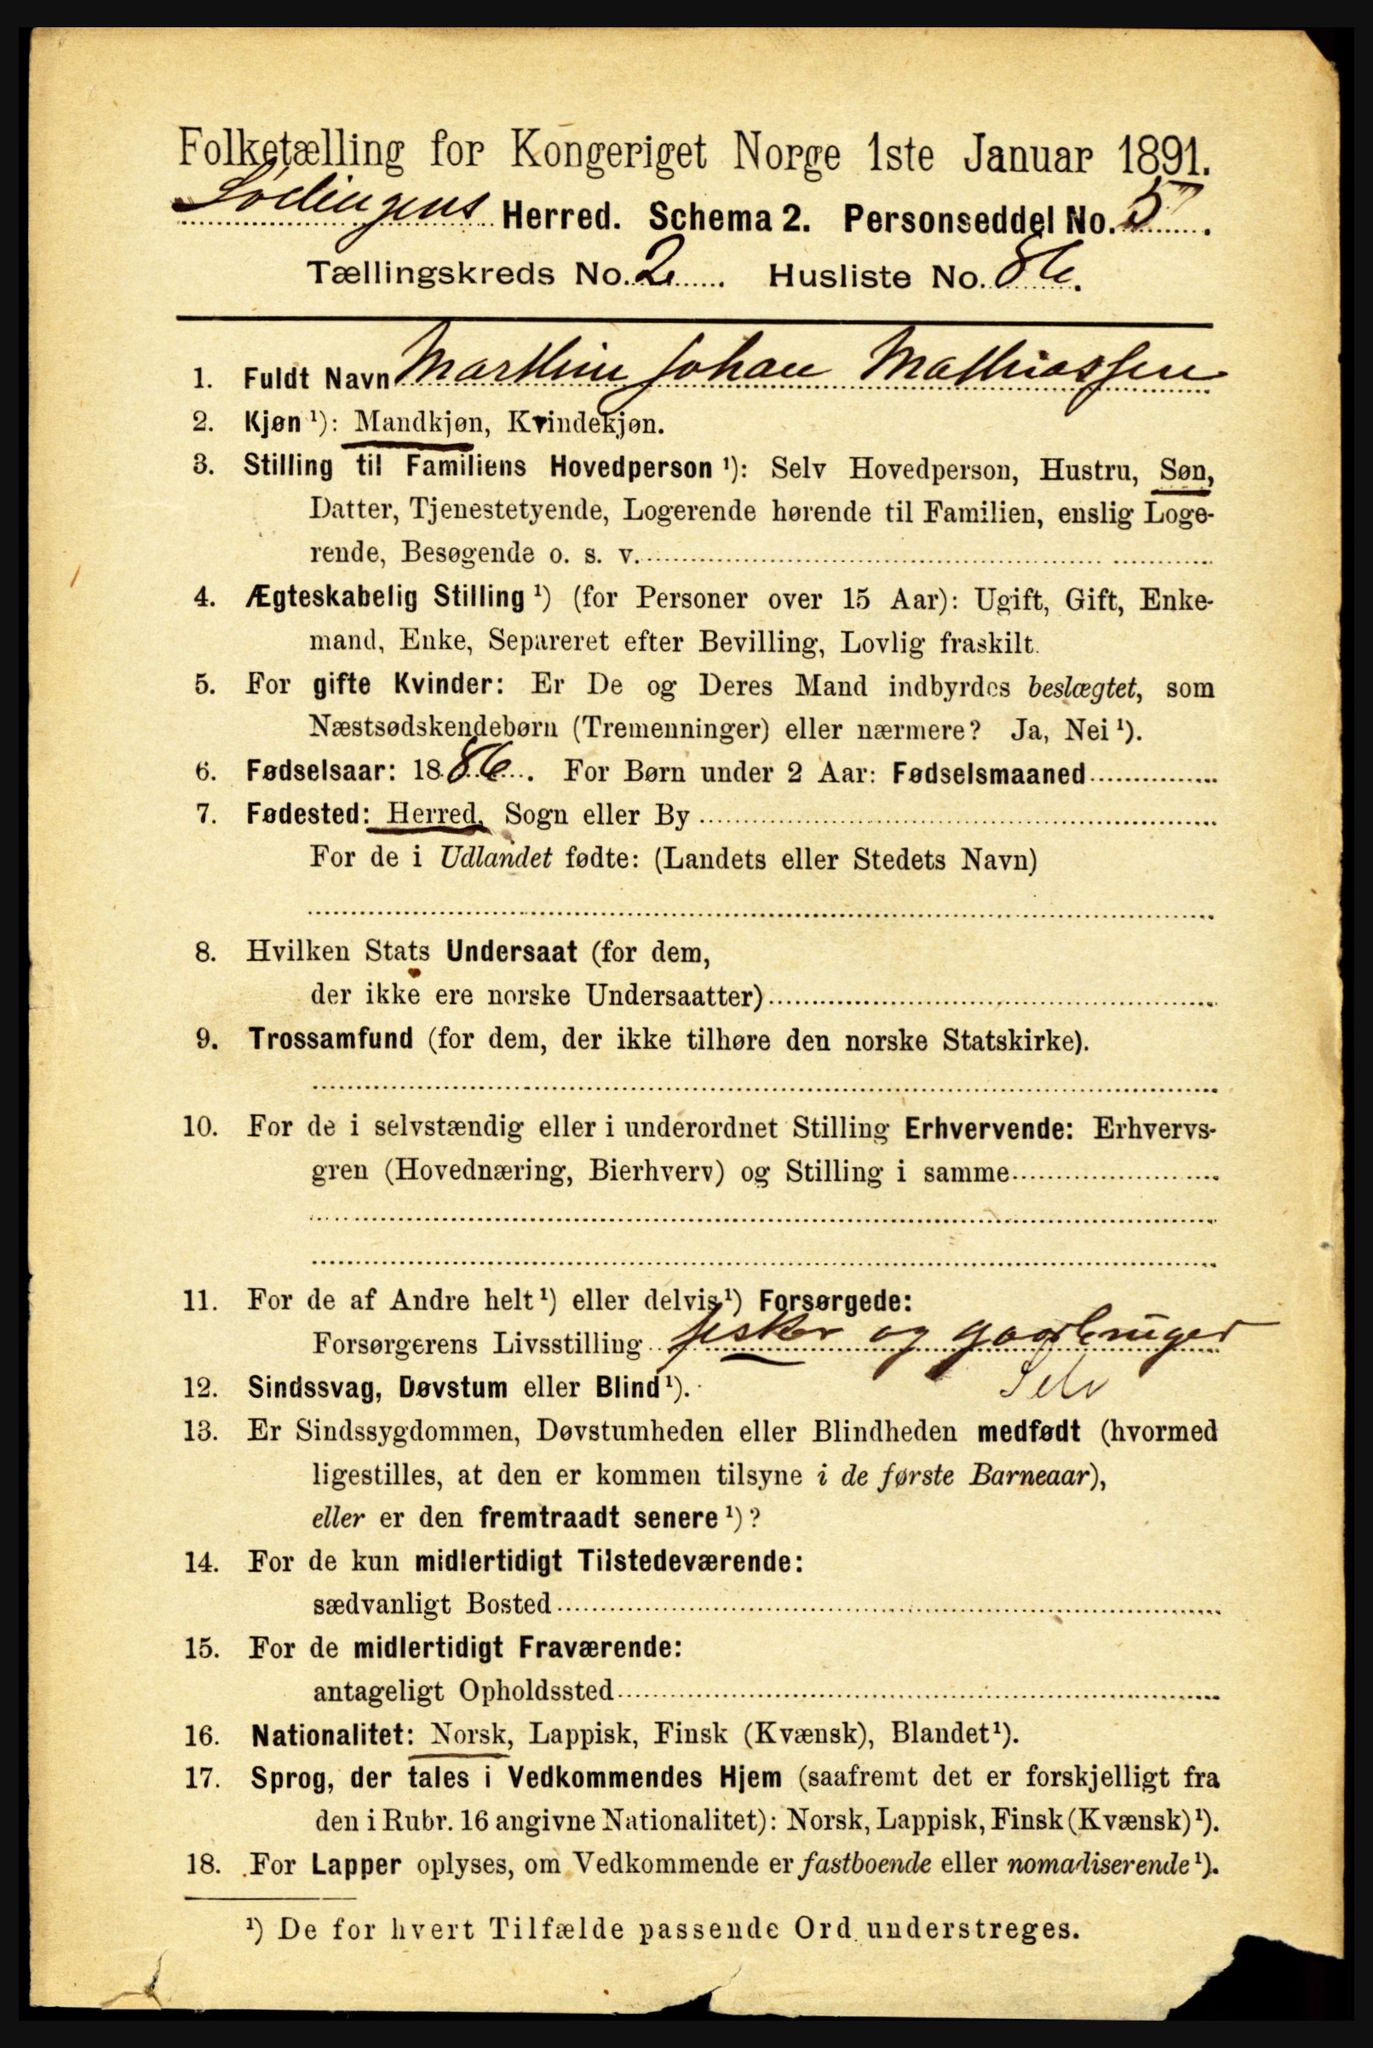 Folketælling for Kongeriget Norge 1ste Januar 1891.
Lødingens Herred. Schema 2. Personseddel No. 5.
Tællingskreds No. 2. Husliste No. 86.
1. Fuldt Navn Marthin Johan Mathiassen
2. Kjøn ¹): Mandkjøn, Kvindekjøn.
3. Stilling til Familiens Hovedperson ¹): Selv Hovedperson, Hustru, Søn,
Datter, Tjenestetyende, Logerende hørende til Familien, enslig Loge-
rende, Besøgende o. s. v.
4. Ægteskabelig Stilling ¹) (for Personer over 15 Aar): Ugift, Gift, Enke-
mand, Enke, Separeret efter Bevilling, Lovlig fraskilt.
5. For gifte Kvinder: Er De og Deres Mand indbyrdes beslægtet, som
Næstsødskendebørn (Tremenninger) eller nærmere? Ja, Nei ¹).
6. Fødselsaar: 1886. For Børn under 2 Aar: Fødselsmaaned
7. Fødested: Herred, Sogn eller By
For de i Udlandet fødte: (Landets eller Stedets Navn)
8. Hvilken Stats Undersaat (for dem,
der ikke ere norske Undersaatter)
9. Trossamfund (for dem, der ikke tilhøre den norske Statskirke).
10. For de i selvstændig eller i underordnet Stilling Erhvervende: Erhvervs-
gren (Hovednæring, Bierhverv) og Stilling i samme
11. For de af Andre helt ¹) eller delvis ¹) Forsørgede:
Forsørgerens Livsstilling fisker og gaardbruger
Selv
12. Sindssvag, Døvstum eller Blind ¹).
13. Er Sindssygdommen, Døvstumheden eller Blindheden medfødt (hvormed
ligestilles, at den er kommen tilsyne i de første Barneaar),
eller er den fremtraadt senere ¹)?
14. For de kun midlertidigt Tilstedeværende:
sædvanligt Bosted
15. For de midlertidigt Fraværende:
antageligt Opholdssted
16. Nationalitet: Norsk, Lappisk, Finsk (Kvænsk), Blandet ¹).
17. Sprog, der tales i Vedkommendes Hjem (saafremt det er forskjelligt fra
den i Rubr. 16 angivne Nationalitet): Norsk, Lappisk, Finsk (Kvænsk) ¹).
18. For Lapper oplyses, om Vedkommende er fastboende eller nomadiserende ¹).
¹) De for hvert Tilfælde passende Ord understreges.